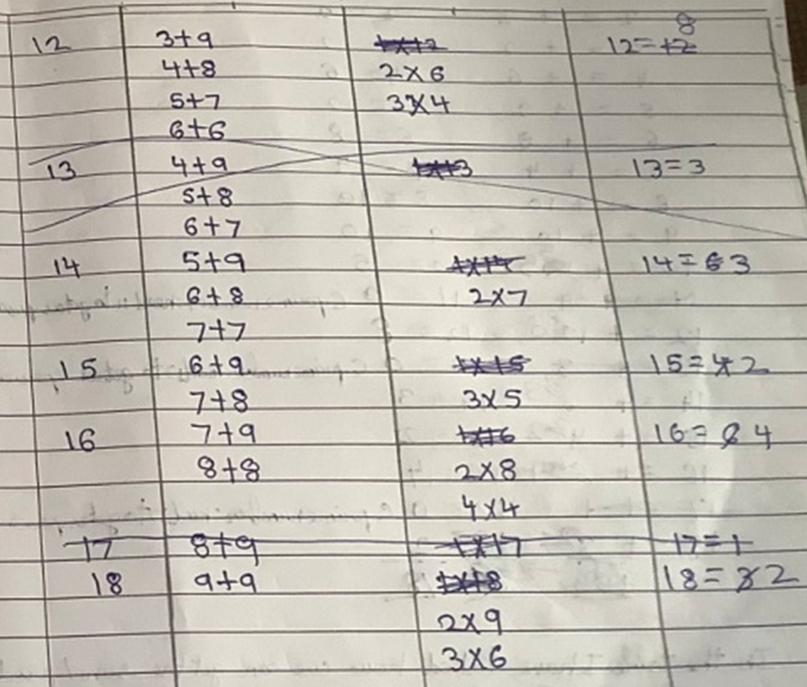 12 3+9 1×12 12=12 8
4+8 2×6
5+7 3×4
6+6
13 4+9 1×13 13=3
5+8
6+7
14 5+9 1×14 14=6 3
6+8 2×7
7+7
15 6+9 1×15 15=4 2
7+8 3×5
16 7+9 1×16 16= 4
8+8 2×8
4×4
17 8+9 1×17 17=1
18 9+9 1×18 18= 2
2×9
3×6